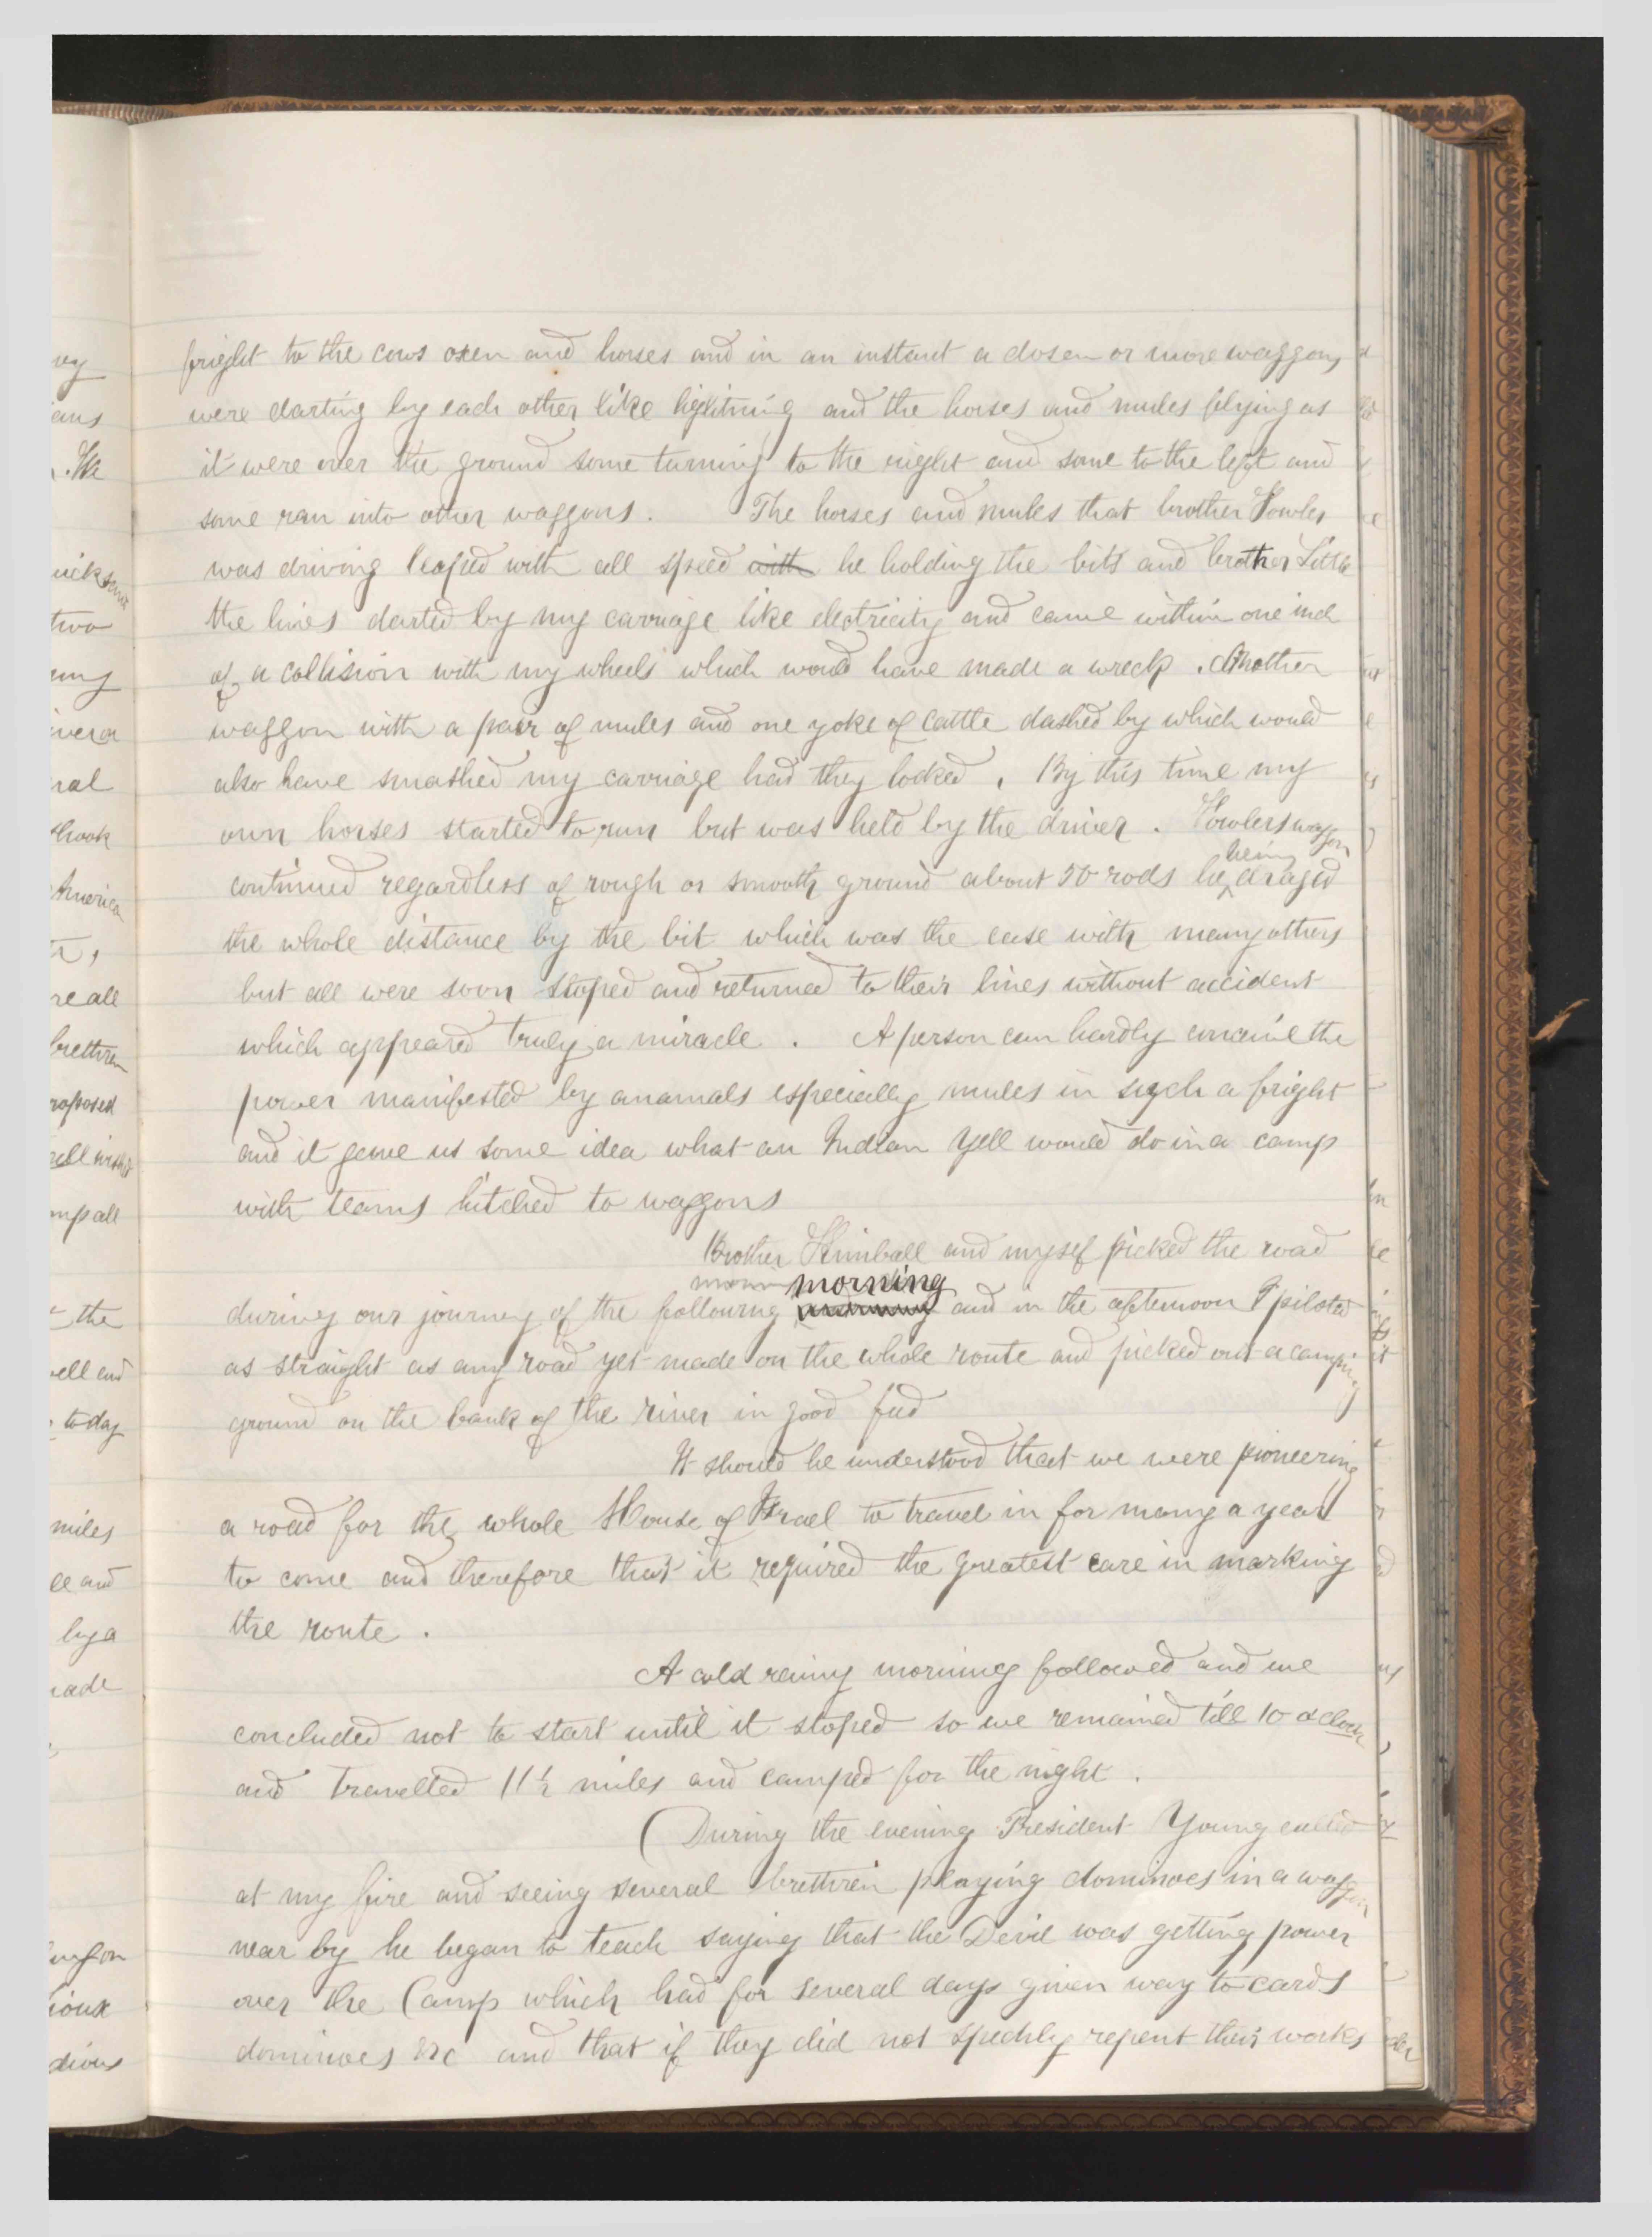 fright to the cows oxen and horses and in an instant a dosen or more waggons
were darting by each other like lightning and the horses and mules flying as
it were over the ground some turning to the right and some to the left and
some ran into other waggons. The horses and mules that brother Fowler
was driving leaped with all speed with he holding the bits and brother Little
the lines darted by my carriage like electricity and came within one inch
of a collision with my wheels which would have made a wreck. Another
waggon with a pair of mules and one yoke of cattle dashed by which would
also have smashed my carriage had they locked. By this time my
own horses started to run but was held by the driver. Fowlers waggon
continued regardless of rough or smooth ground about 50 rods he being draged
the whole distance by the bit which was the case with many others
but all were soon stoped and returned to their lines without accident
which appeared truly a miracle. A person can hardly conceive the
power manifested by anamals especially mules in such a fright
and it gave us some idea what an Indian yell would do in a camp
with teams hitched to waggons
Brother Kimball and mysef picked the road
morning
during our journey of the following and in the afternoon I piloted
as straight as any road yet made on the whole route and picked out a camping
ground on the bank of the river in good feed
It should be understood that we were pioneering
a road for the whole House of Israel to travel in for many a year
to come and therefore that it required the greatest care in marking
the route.
A cold rainy morning followed and we
concluded not to start until it stoped so we remained till 10 oclock
and travelled 11½ miles and camped for the night.
(During the evening President Young called
at my fire and seeing several brethren playing dominoes in a waggon
near by he began to teach saying that the Devil was getting power
over the Camp which had for several days given way to cards
dominoes &c and that if they did not speedily repent their works